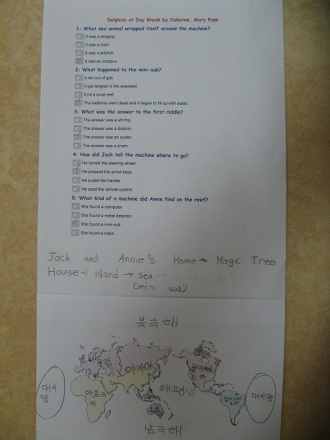 Dolphins at Day Break by Osborne, Mary Pope
1: What sea animal wrapped itself around the machine?
It was a stingray.
It was a clam
It was a jellyfish
It was an octopus
2: What happened to the mini-sub?
It ran out of gas
It got tangled in the seaweed
It hit a coral reef
The batteries went dead and it began to fill up with water.
3: What was the answer to the first riddle?
The answer was a shrimp.
The answer was a dolphin.
The answer was an oyster.
The answer was a shark.
4: How did Jack tell the machine where to go?
He turned the steering wheel
He pressed the arrow keys
He pulled the handle
He used the remote control
5: What kind of a machine did Annie find on the reef?
She found a computer
She found a metal detector
She found a mini-sub
She found a robot
Jack and Annie's Home → Magic Tree
House → island → sea
(mini sub?)
북극해
아시아
아프리카
태평양
대서양
대서양
남극해